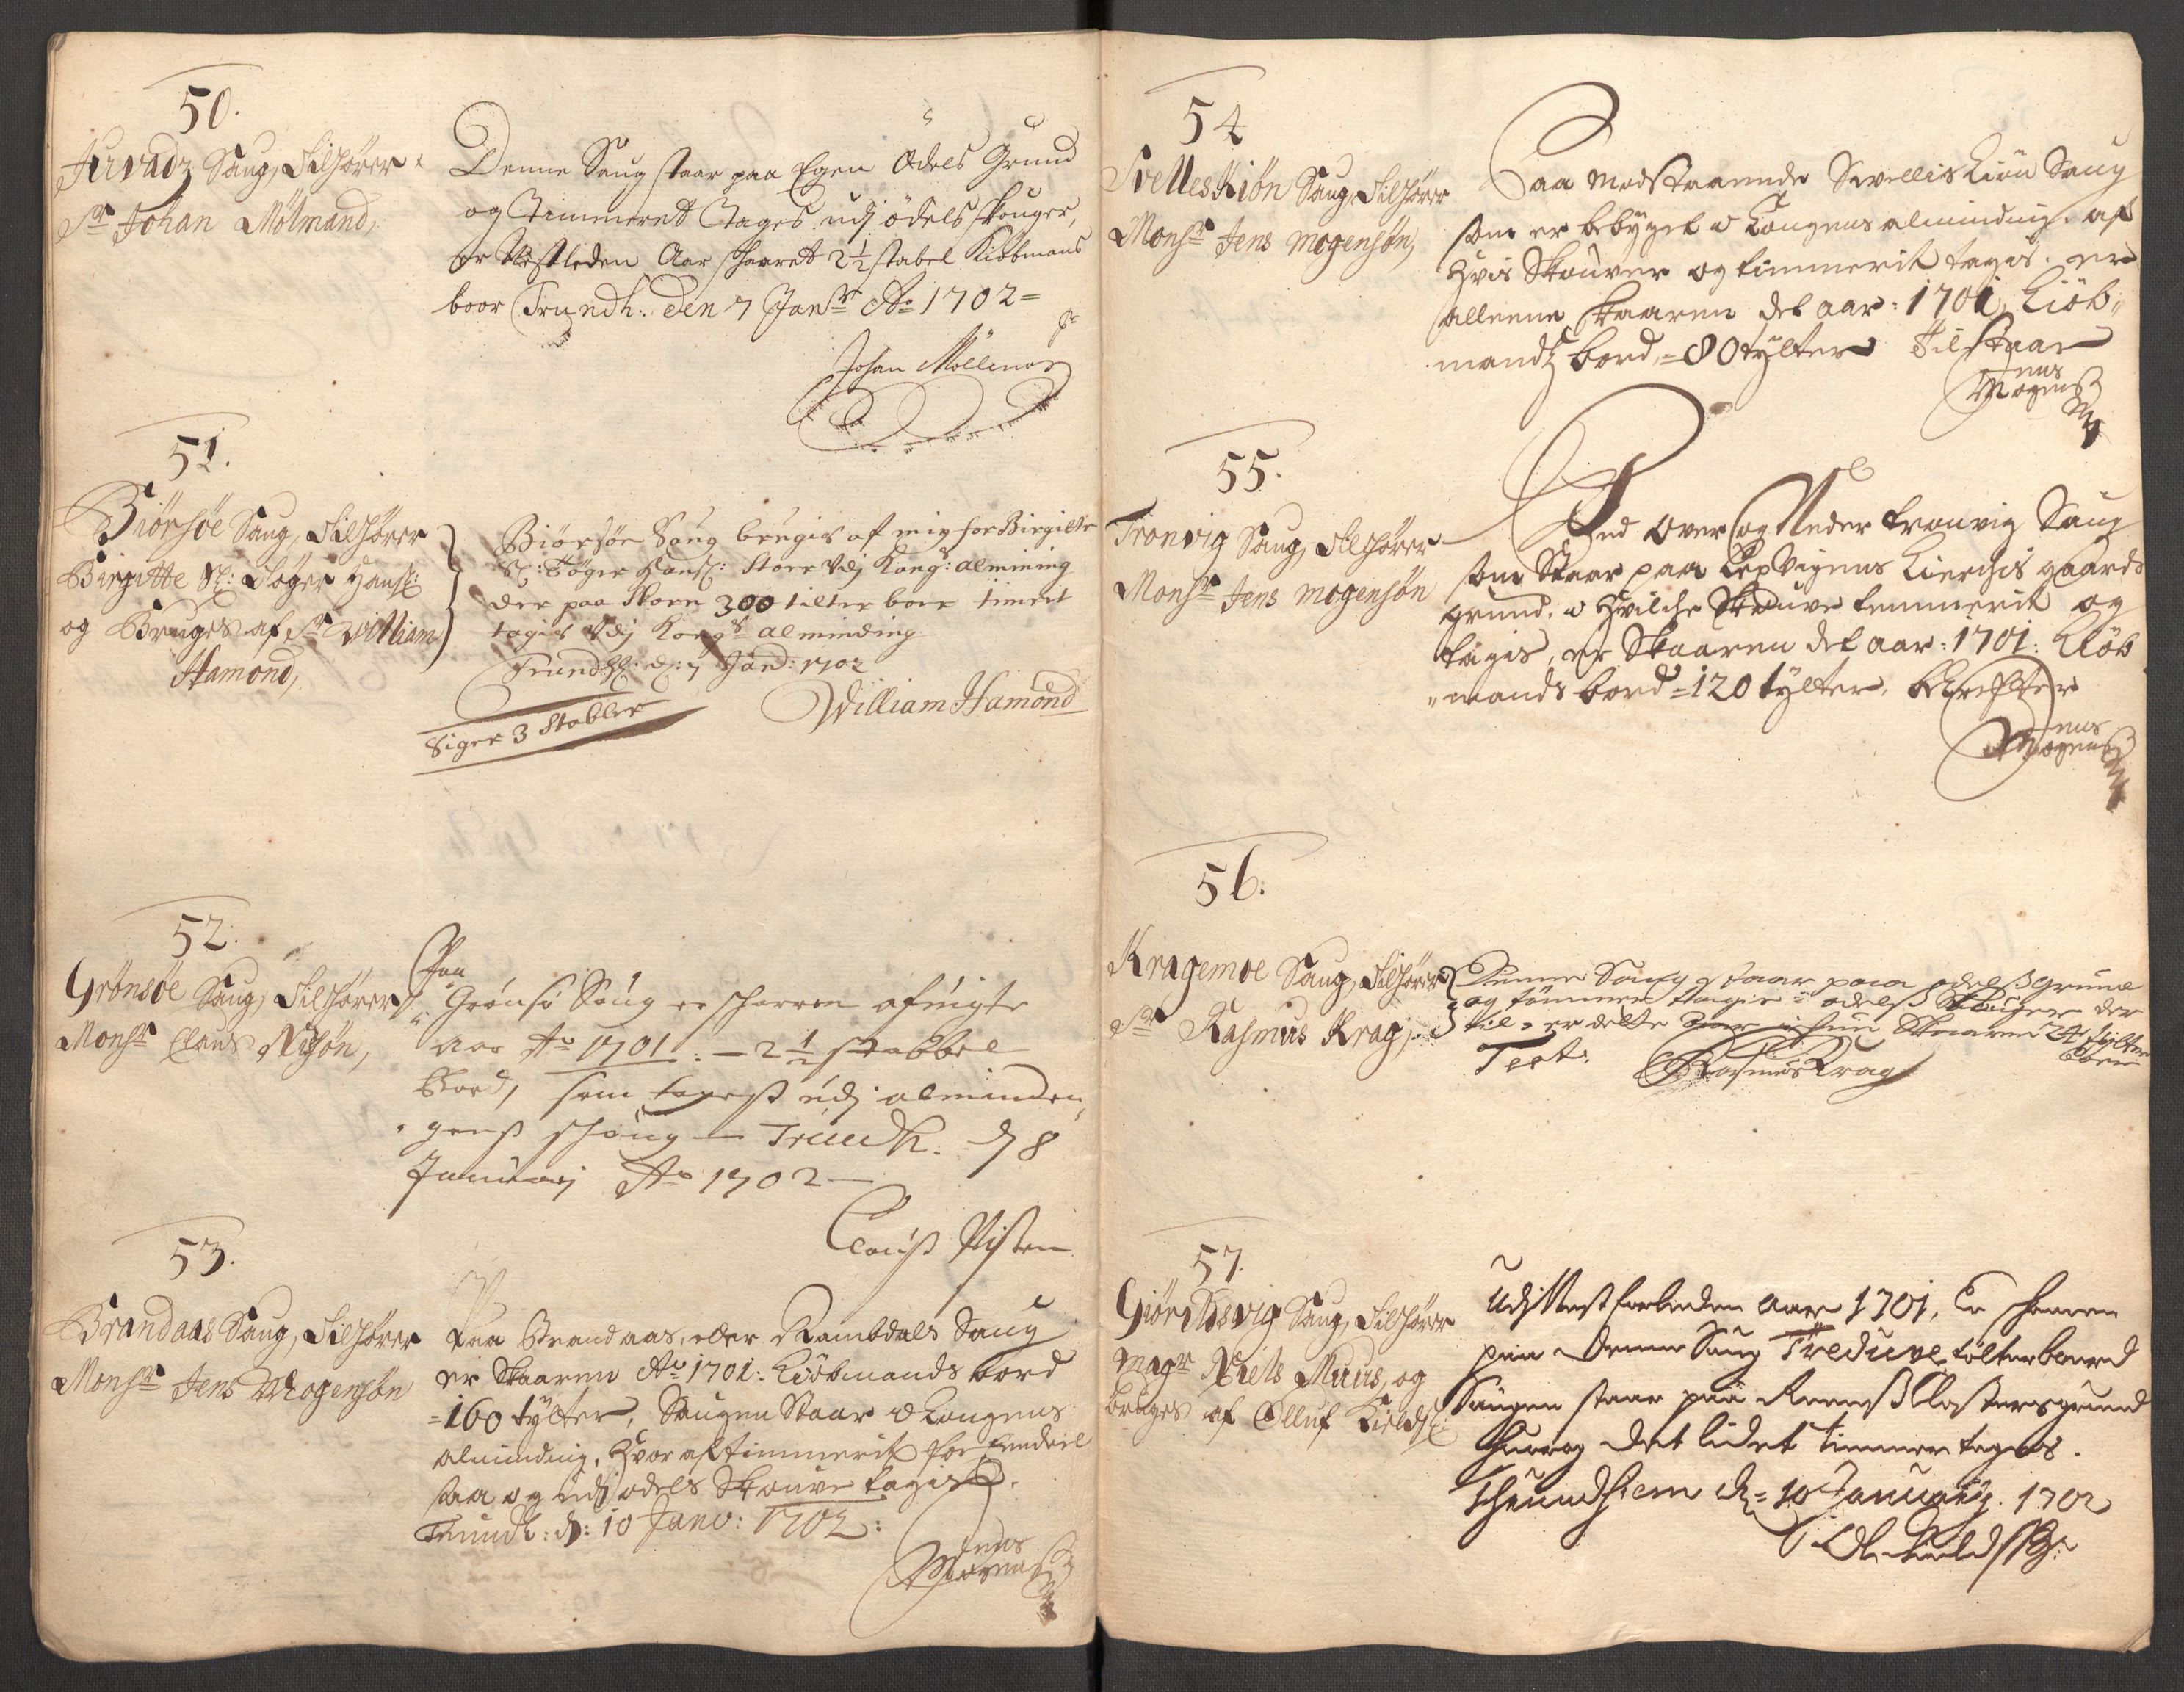 50.
Juvadz Saug, Tilhörer
Sr Johan Mölmand,
Denne Saug staar paa Egen Odels Grund
og Timmeret Tages udj ödels skouger,
er Nestleden Aar skaaret 2½ stabel Kiöbmans
boor Trundh: den 7 Janr Ao 1702=
Johan Möllman
51.
Biörsöe Saug, Tilhörer
Birgitte Sl: Töger Hans:
og Bruges af Sr William
Hamond,
Biörsöe Saug brugis af mig for Birgitte
Sl: Töger Hans: staar Vdj Kong: alminding
der paa skorn 300 tilter bore timret
tagis Vdj Kongs alminding
Trundh: d: 7 Janu: 1702
William Hamond
Siger 3 Stabler
52.
Grönsöe Saug, Tilhörer
Monsr Claus Nisön,
Paa
Grönsö Saug er skorren afvigte
aar Ao 1701: - 2½ stabbel
Bord, som tagess udj alminden
gens skoug - Trundh. d 8
Januarj Ao 1702 -
Clauss Nissen
53.
Brandaas Saug, Tilhörer
Monsr Jens Mogensön
Paa Brandaas, eller Rambdals Saug
er Skaaren Ao 1701: Kiöbmands bord
=160 tylter, Saugen Staar i Kongens
alminding, hvor af timmerit for Eendeel
saa og udj odels Skouve tagis.
Trundh: d: 10 Janv: 1702:
Jens
Mogenss
54
SvellesKiön Saug, Tilhörer
Monsr Jens Mogensön,
Paa Modstaaende Svellis Kiön Saug
som er bebygt i Kongens alminding. af
hvis Skouver og timmerit tagis. er
alleene Skaaren det aar: 1701, Kiöb
mandz bord, =80 tylter Tilstaar
Jens
Mogenss
55.
Tronvig Saug, Tilhörer
Monsr Jens Mogensön
Ved Over og Neder Tronvig Saug
som Staar paa LexVigens Kierchis gaards
grund. i hvilche Skouve temmerit og
tagis, er Skaaren det aar: 1701: Kiöb
mands bord =120 tylter, bekrefter
Jens
Mogenss
56.
Kragemoe Saug, Tilhörer
Sr Rasmus Krag,
Denne Saug staar paa odelss grund
og tömmer tagis i odelss Skouger der
til er dette aar i hun Skaaren 24 tylter
boer
Test.
Rasmus Krag
57.
Giörildsvig Saug, Tilhörer
Magr Niels Muus, og
bruges af Olluf Kieldss:
Udj Nestforleden Aar 1701, Er skaaren
paa denne Saug Treduve tölter boord
Saugen staar paa Reenss Closters grund
huorog det lidet timmer tages.
Thrundhiem d = 10 Januarij. 1702
Ol: Kieldss: